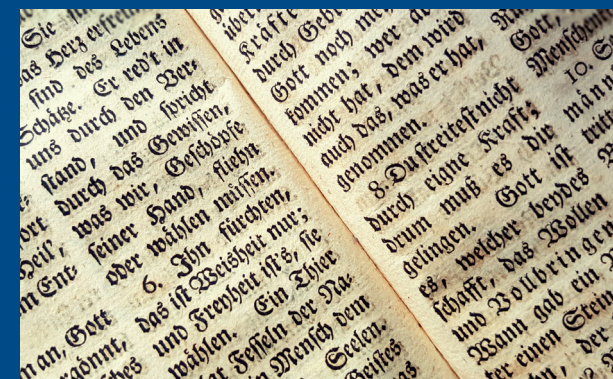 Sie
das Herz erfreu
sind des Lebens
Schätze. Er red't in
uns durch den Ver-
stand, und spricht
durch das Gewissen,
was wir, Geschöpfe
seiner Hand, fliehn
oder wählen müssen.
6. Ihn fürchten,
das ist Weisheit nur;
und Freyheit ist's, sie
wählen. Ein Thier
Fesseln der Na-
Mensch dem
Seelen.
Geistes
Heil,
m Ent-
n an, Gott
über
Kräfte
durch Gebe
Gott noch me
kommen; wer
nicht hat, dem wird
auch das, was er hat,
genommen.
8. Du streitest nicht
durch eigne Kraft;
drum muß es dir
gelingen. Gott ist
es, welcher beydes
schafft, das Wollen
und Vollbringe
Wann gab ein
einen Stein
der
Gott,
Menschen
10. S
man